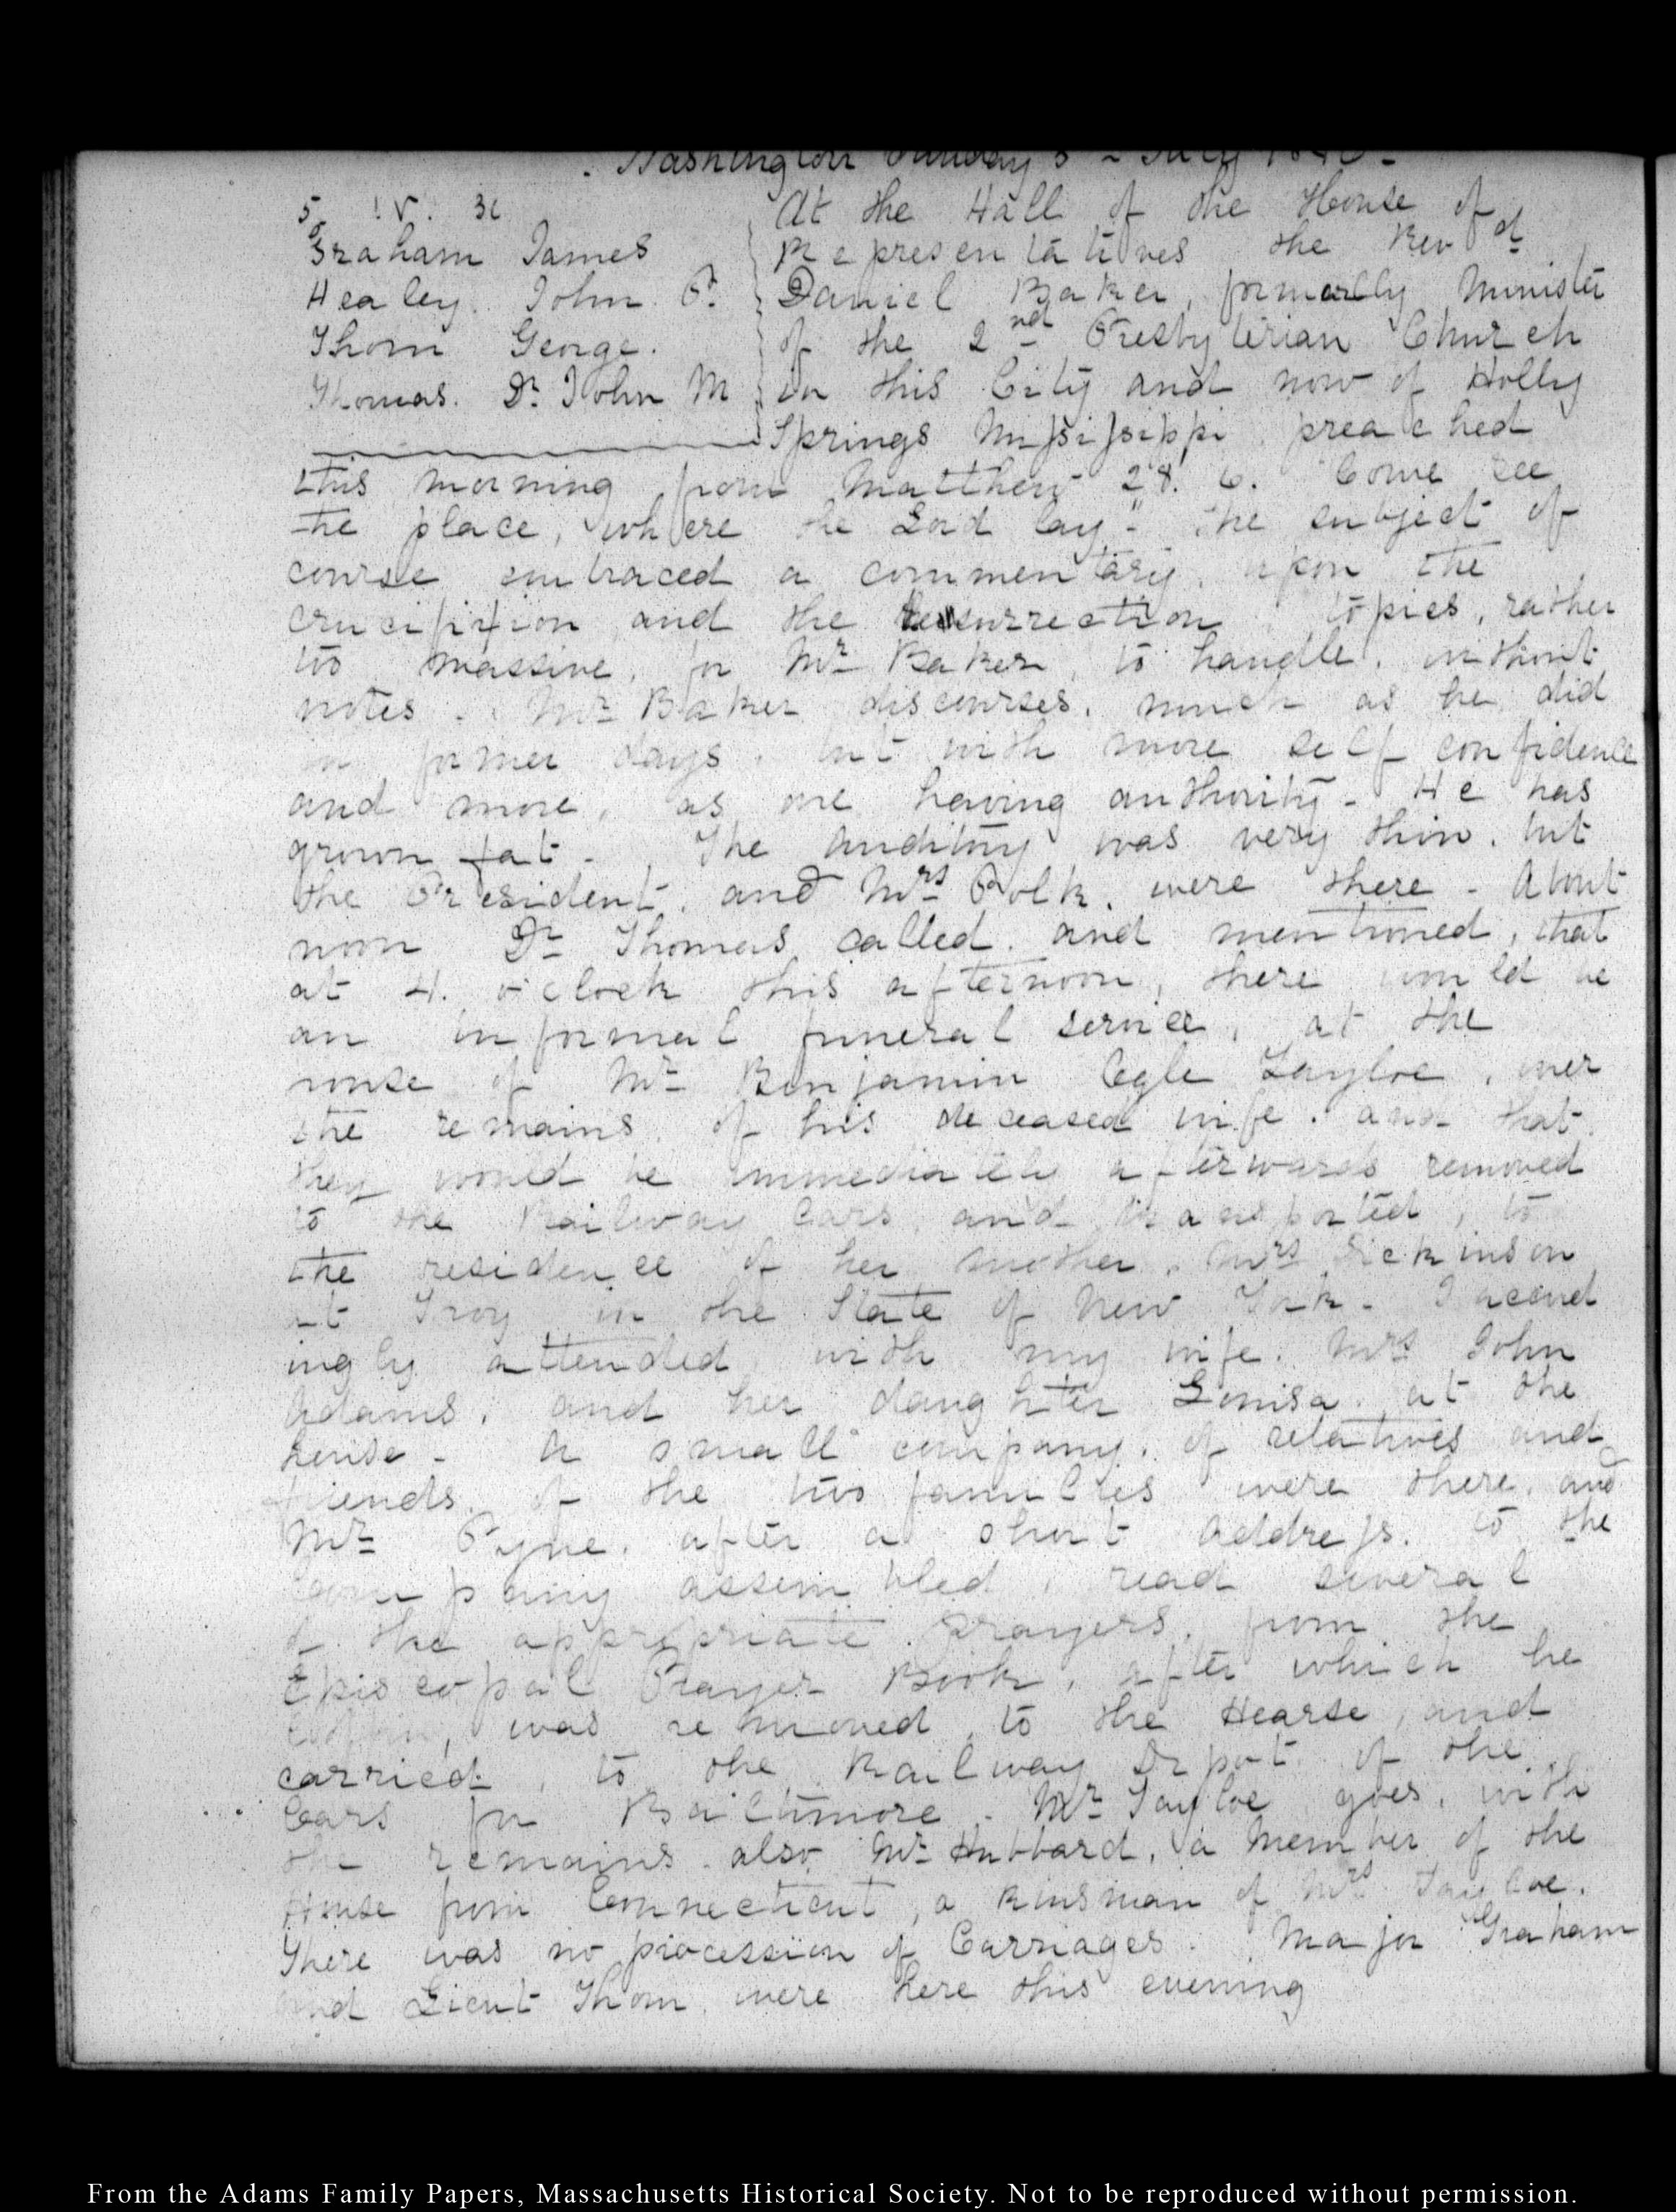 Washington Sunday 5 - July 1846 -
5. IV. 30
Graham James
Healey. John P.
Thom George.
Thomas. Dr. John M
At the Hall of the House of
Representatives the Revd.
Daniel Baker, formerly Minister
of the 2nd Presbyterian Church
in this City and now of Holly
Springs Missisippi preached
this morning from Matthew 28. 6. Come see
the place, where the Lord lay." The subject of
course embraced a commentary, upon the
crucifixion and the Resurrection topics, rather
too massive, for Mr Baker, to handle, without
notes. Mr Baker discourses, much as he did
in former days, but with more self confidence
and more, as one having authority - He has
grown fat - The auditory was very thin, but
the President, and Mrs Polk, were there - About
noon Dr Thomas called, and mentioned, that
at 4. o'clock this afternoon, there would be
an informal funeral service, at the
house of Mr Benjamin Ogle Tayloe, over
the remains, of his deceased wife. and that
they would be immediately afterwards removed
to the Railway Cars, and transported, to
the residence of her mother, Mrs Dickinson
at Troy in the State of New York - I accord
ingly attended with my wife. Mrs John
Adams, and her daughter Louisa, at the
house - A small company, of relatives and
friends, of the two families were there, and
Mr Pyne, after a short address, to the
company assembled, read several
of the appropriate prayers, from the
Episcopal Prayer Book, after which the
coffin, was removed, to the Hearse, and
carried, to the Railway Depot of the
Cars for Baltimore - Mr Tayloe goes, with
the remains, also Mr Hubbard, a Member of the
House from Connecticut, a kinsman of Mrs Tayloe.
There was no procession of Carriages. Major Graham
and Lieut Thom, were here this evening
From the Adams Family Papers, Massachusetts Historical Society. Not to be reproduced without permission.